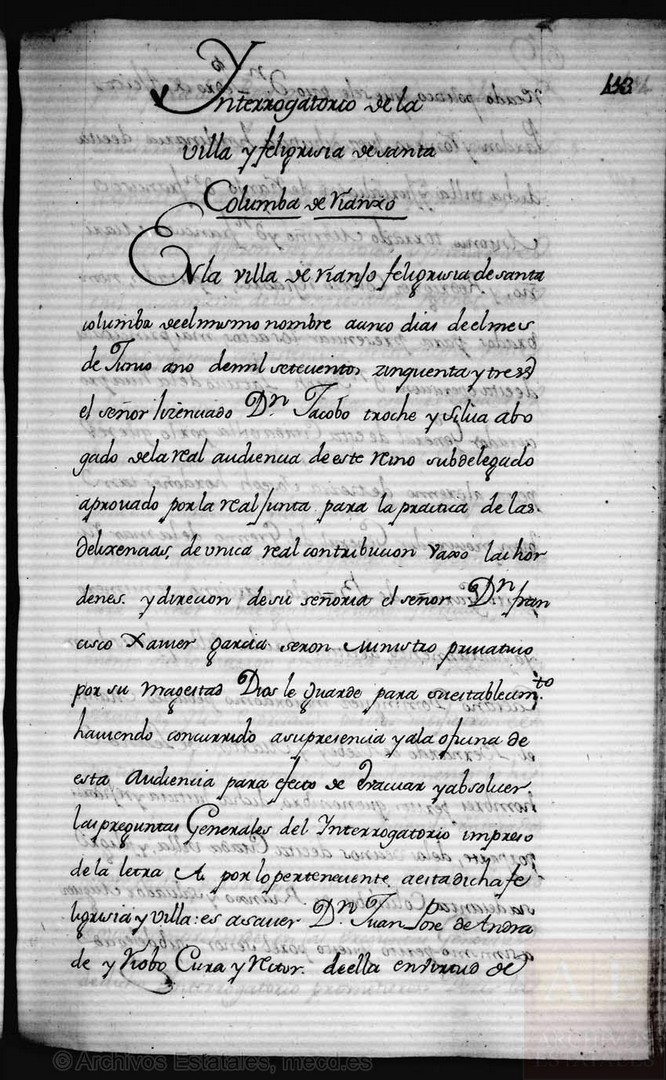 113
Ynterrogatorio de la
villa y feligrisia de santa
Columba de Rianxo
Enla villa de rianso feligrisia de santa
columba de el mismo nombre a cinco dias de el mes
de Junio ano de mil setecientos zinquenta y tres
el señor lizenciado Dn. Jacobo troche y silua abo
gado de la real audiencia de este reino subdelegado
aprouado por la real Junta para la practica de las
delixencias, de vnica real contribucion vaxo las hor
denes. y direcion de su señoria el señor Dn fran
cisco Xauier garcia seron Ministro priuatiuo
por su Magestad Dios le guarde para su establecim.to
hauiendo concurrido a su presencia y ala oficina de
esta Audiencia para efecto de Evacuar y absoluer
las preguntas Generales del Ynterrogatorio impreso
de la letra A por lo perteneciente a esta dicha fe
ligrisia y villa: es a sauer Dn. Juan Jose de Andra
de y Robo Cura y Rector. de ella en virtud de
© Archivos Estatales, mecd.es